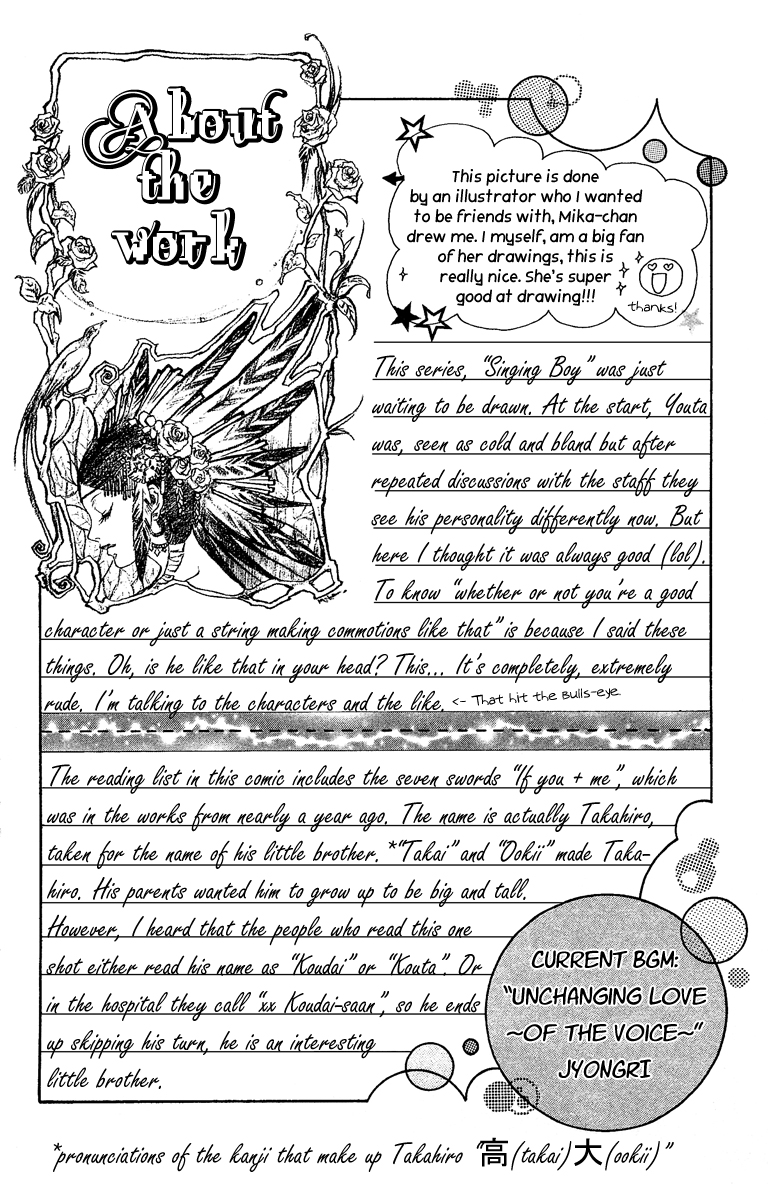 About
the
work
This picture is done
by an illustrator who I wanted
to be friends with, Mika-chan
drew me. I myself, am a big fan
of her drawings, this is
really nice. She's super
good at drawing!!!
thanks!
This series, "Singing Boy" was just
waiting to be drawn. At the start, Youta
was, seen as cold and bland but after
repeated discussions with the staff they
see his personality differently now. But
here I thought it was always good (lol).
To know "whether or not you're a good
character or just a string making commotions like that" is because I said these
things. Oh, is he like that in your head? This... It's completely, extremely
rude. I'm talking to the characters and the like. <- That hit the Bulls-eye
The reading list in this comic includes the seven swords "If you + me", which
was in the works from nearly a year ago. The name is actually Takahiro,
taken for the name of his little brother. *"Takai" and "Ookii" made Taka-
hiro. His parents wanted him to grow up to be big and tall.
However, I heard that the people who read this one
shot either read his name as "Koudai" or "Kouta". Or
in the hospital they call "xx Koudai-saan", so he ends
up skipping his turn, he is an interesting
little brother.
CURRENT BGM:
"UNCHANGING LOVE
~OF THE VOICE~"
JYONGRI
*pronunciations of the kanji that make up Takahiro "高(takai)大(ookii)"